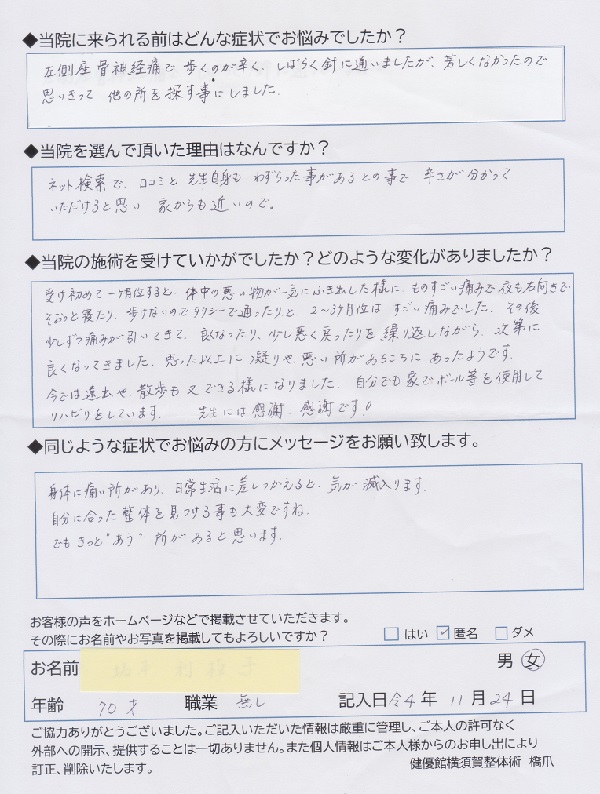 ◆当院に来られる前はどんな症状でお悩みでしたか？
左側座骨神経痛で歩くのが辛く、しばらく針に通いましたが、芳しくなかったので
思いきって他の所を探す事にしました。
◆当院を選んで頂いた理由はなんですか？
ネット検索で、口コミと先生自身もわずらった事があるとの事で辛さが分かって
いただけると思い 家からも近いので。
◆当院の施術を受けていかがでしたか？どのような変化がありましたか？
受け初めて一ヶ月位すると、体中の悪い物が一気にふき出した様に、ものすごい痛みで夜も右向きで
そおっと寝たり、歩けないのでタクシーで通ったりと 2〜3ヶ月位は すごい痛みでした。その後
少しずつ痛みが引いてきて、良くなったり、少し悪く戻ったりを繰り返しながら、次第に
良くなってきました。思った以上に凝りや悪い所があちこちにあったようです。
今では遠出や散歩も又できる様になりました。自分でも家でボール等を使用して
リハビリをしています。 先生には感謝、感謝です。
◆同じような症状でお悩みの方にメッセージをお願い致します。
身体に痛い所があり、日常生活に差しつかえると、気が滅入ります。
自分に合った整体を見つける事も大変ですね。
でもきっと"あう"所があると思います。
お客様の声をホームページなどで掲載させていただきます。
その際にお名前やお写真を掲載してもよろしいですか？ はい ✓匿名 ダメ
お名前 男 女
年齢 70才 職業 無し 記入日 令4年 11月 24日
ご協力ありがとうございました。ご記入いただいた情報は厳重に管理し、ご本人の許可なく
外部への開示、提供することは一切ありません。また個人情報はご本人様からのお申し出により
訂正、削除いたします。 健優館横須賀整体術 橋爪